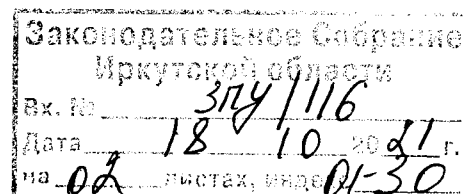 Законодательное Собрание
Иркутской области
Вх. № ЗПУ/1116
Дата 18 10 2021 г.
на 02 листах, индекс 01-30